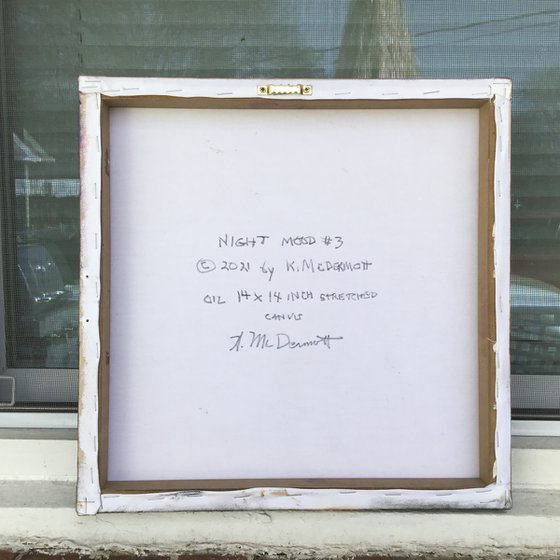 NIGHT MOOD #3
© 2021 by K. McDERMOTT
OIL 14 x 14 INCH STRETCHED
CANVIS
K. McDermott